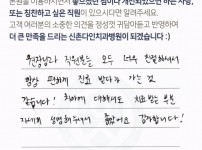 본원을 이용하시면서 좋았던 점이나 개선되었으면 하는 사항,
또는 칭찬하고 싶은 직원이 있으시다면 알려주세요.
고객 여러분의 소중한 의견을 정성껏 귀담아듣고 반영하여
더 큰 만족을 드리는 신촌다인치과병원이 되겠습니다 :)
원장님과 직원분들 모두 너무 친절하셔서
항상 편하게 진료 받다가 가는 것
같습니다! 치아에 대해서도
자세히 설명해주셔서 좋았어요 감사합니다!